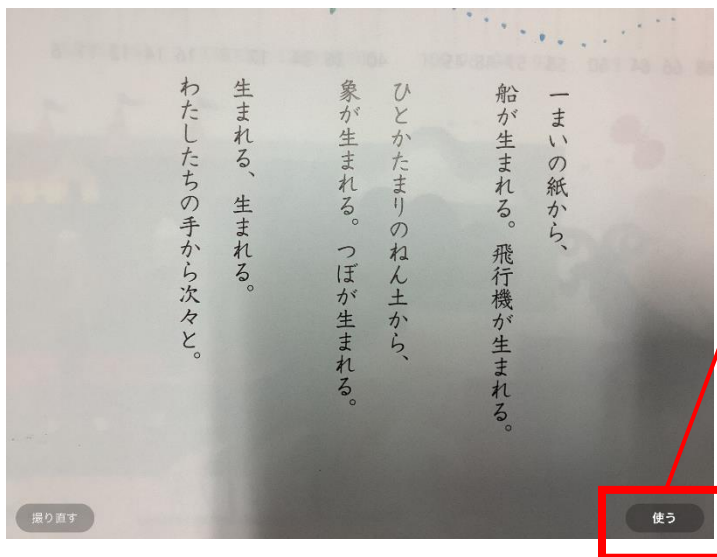 一まいの紙から、
船が生まれる。飛行機が生まれる。
ひとかたまりのねん土から、
象が生まれる。つぼが生まれる。
生まれる、生まれる。
わたしたちの手から次々と。
撮り直す
使う